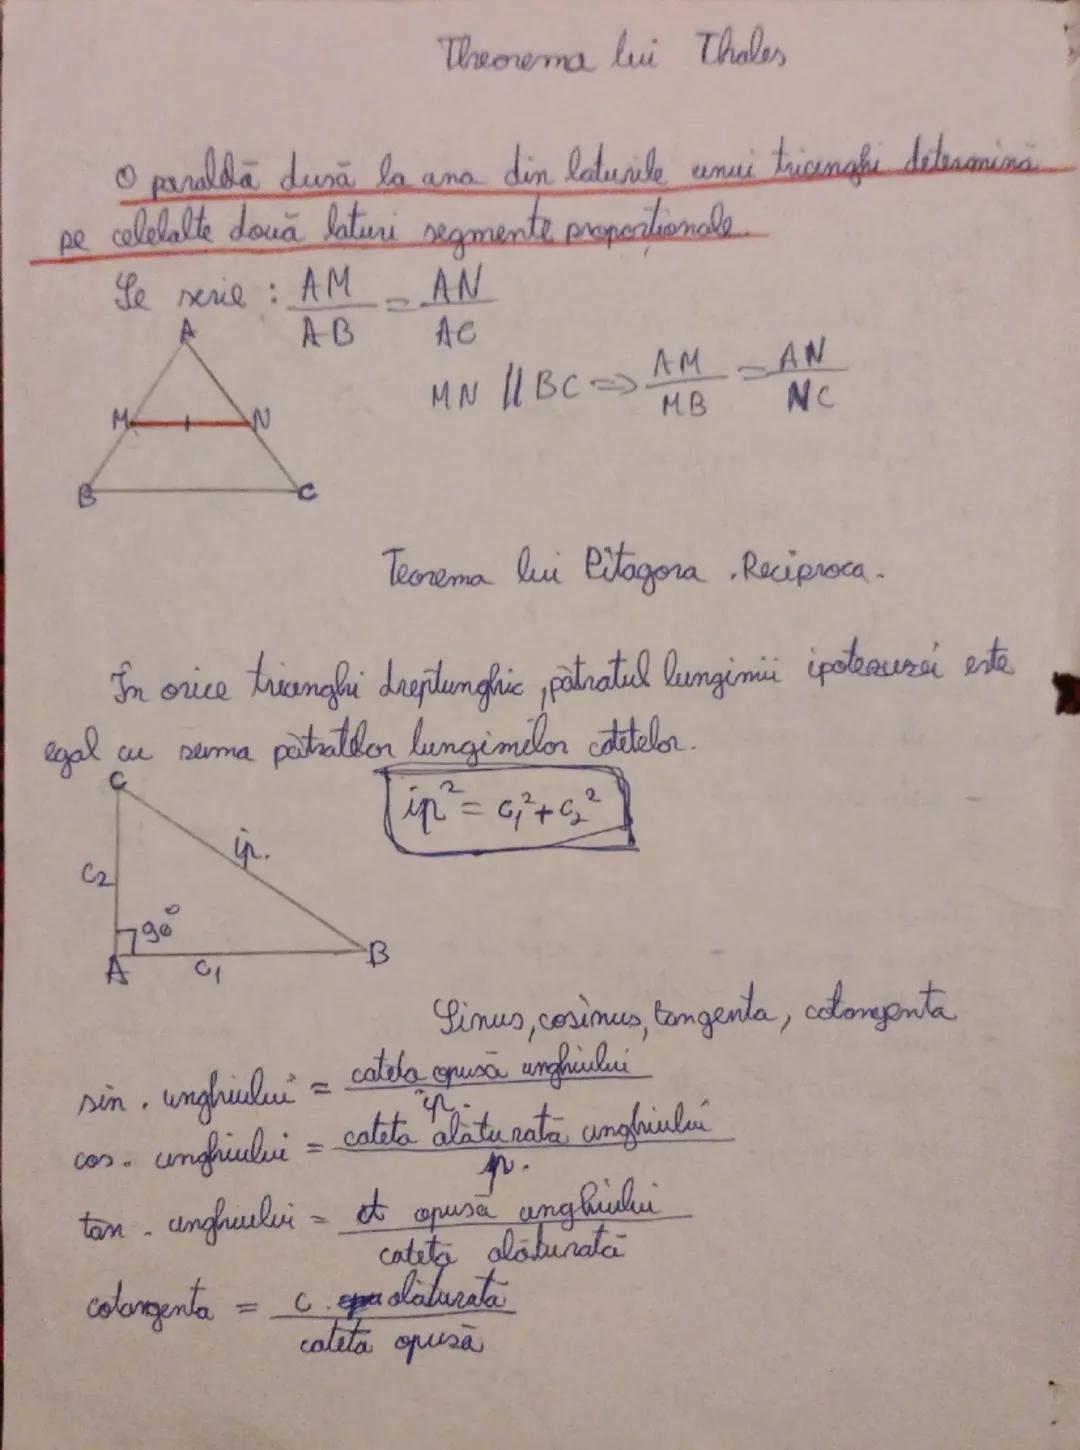 Theorema lui Thales
O paralelă dusă la una din laturile unui triunghi determină
pe celelalte două laturi segmente proporționale.
Se scrie : AM/AB = AN/AC
A
MN || BC => AM/MB = AN/NC
M N
B C
Teorema lui Pitagora . Reciproca.
În orice triunghi dreptunghic, pătratul lungimii ipotenuzei este
egal cu suma pătratelor lungimilor catetelor.
C
ip² = c₁² + c₂²
ip.
c₂
90°
A c₁ B
Sinus, cosinus, tangenta, cotangenta
sin . unghiului = cateta opusă unghiului / ip.
cos . unghiului = cateta alăturată unghiului / ip.
tan . unghiului = ct opusă unghiului / catetă alăturată
cotangenta = c. alăturată / catetă opusă